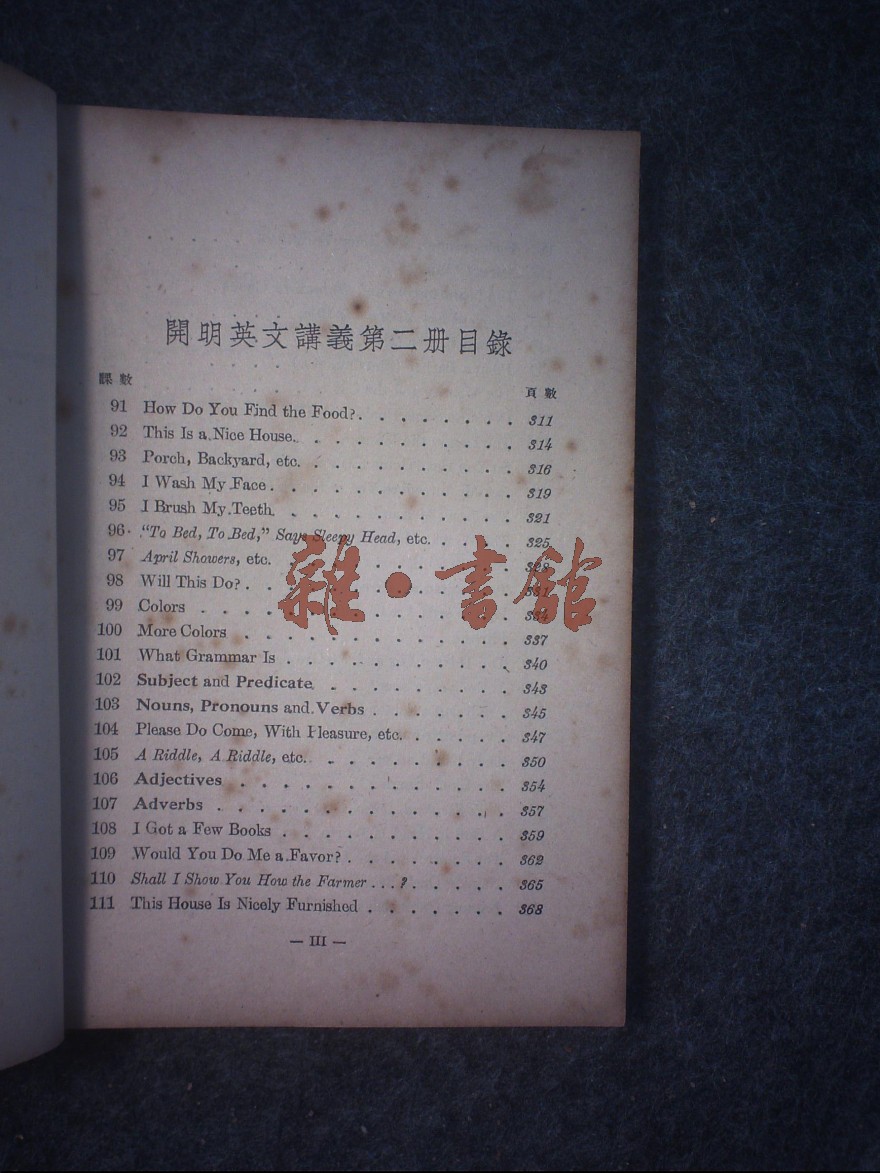 開明英文講義第二册目錄
課數 頁數
91 How Do You Find the Food? . . . . . . . . 311
92 This Is a Nice House. . . . . . . . . . . 314
93 Porch, Backyard, etc. . . . . . . . . . . 316
94 I Wash My Face . . . . . . . . . . . . 319
95 I Brush My Teeth . . . . . . . . . . . . 321
96 "To Bed, To Bed," Says Sleepy Head, etc. . . . . 325
97 April Showers, etc. . . . . . . . . . . . 328
98 Will This Do? . . . . . . . . . . . . . 331
99 Colors . . . . . . . . . . . . . . . 334
100 More Colors . . . . . . . . . . . . . 337
101 What Grammar Is . . . . . . . . . . . 340
102 Subject and Predicate . . . . . . . . . . 343
103 Nouns, Pronouns and Verbs . . . . . . . 345
104 Please Do Come, With Pleasure, etc. . . . . . 347
105 A Riddle, A Riddle, etc. . . . . . . . . . 350
106 Adjectives . . . . . . . . . . . . . . 354
107 Adverbs . . . . . . . . . . . . . . . 357
108 I Got a Few Books . . . . . . . . . . . 359
109 Would You Do Me a Favor? . . . . . . . . 362
110 Shall I Show You How the Farmer . . . ? . . . . . 365
111 This House Is Nicely Furnished . . . . . . . 368
— III —
雜·書館